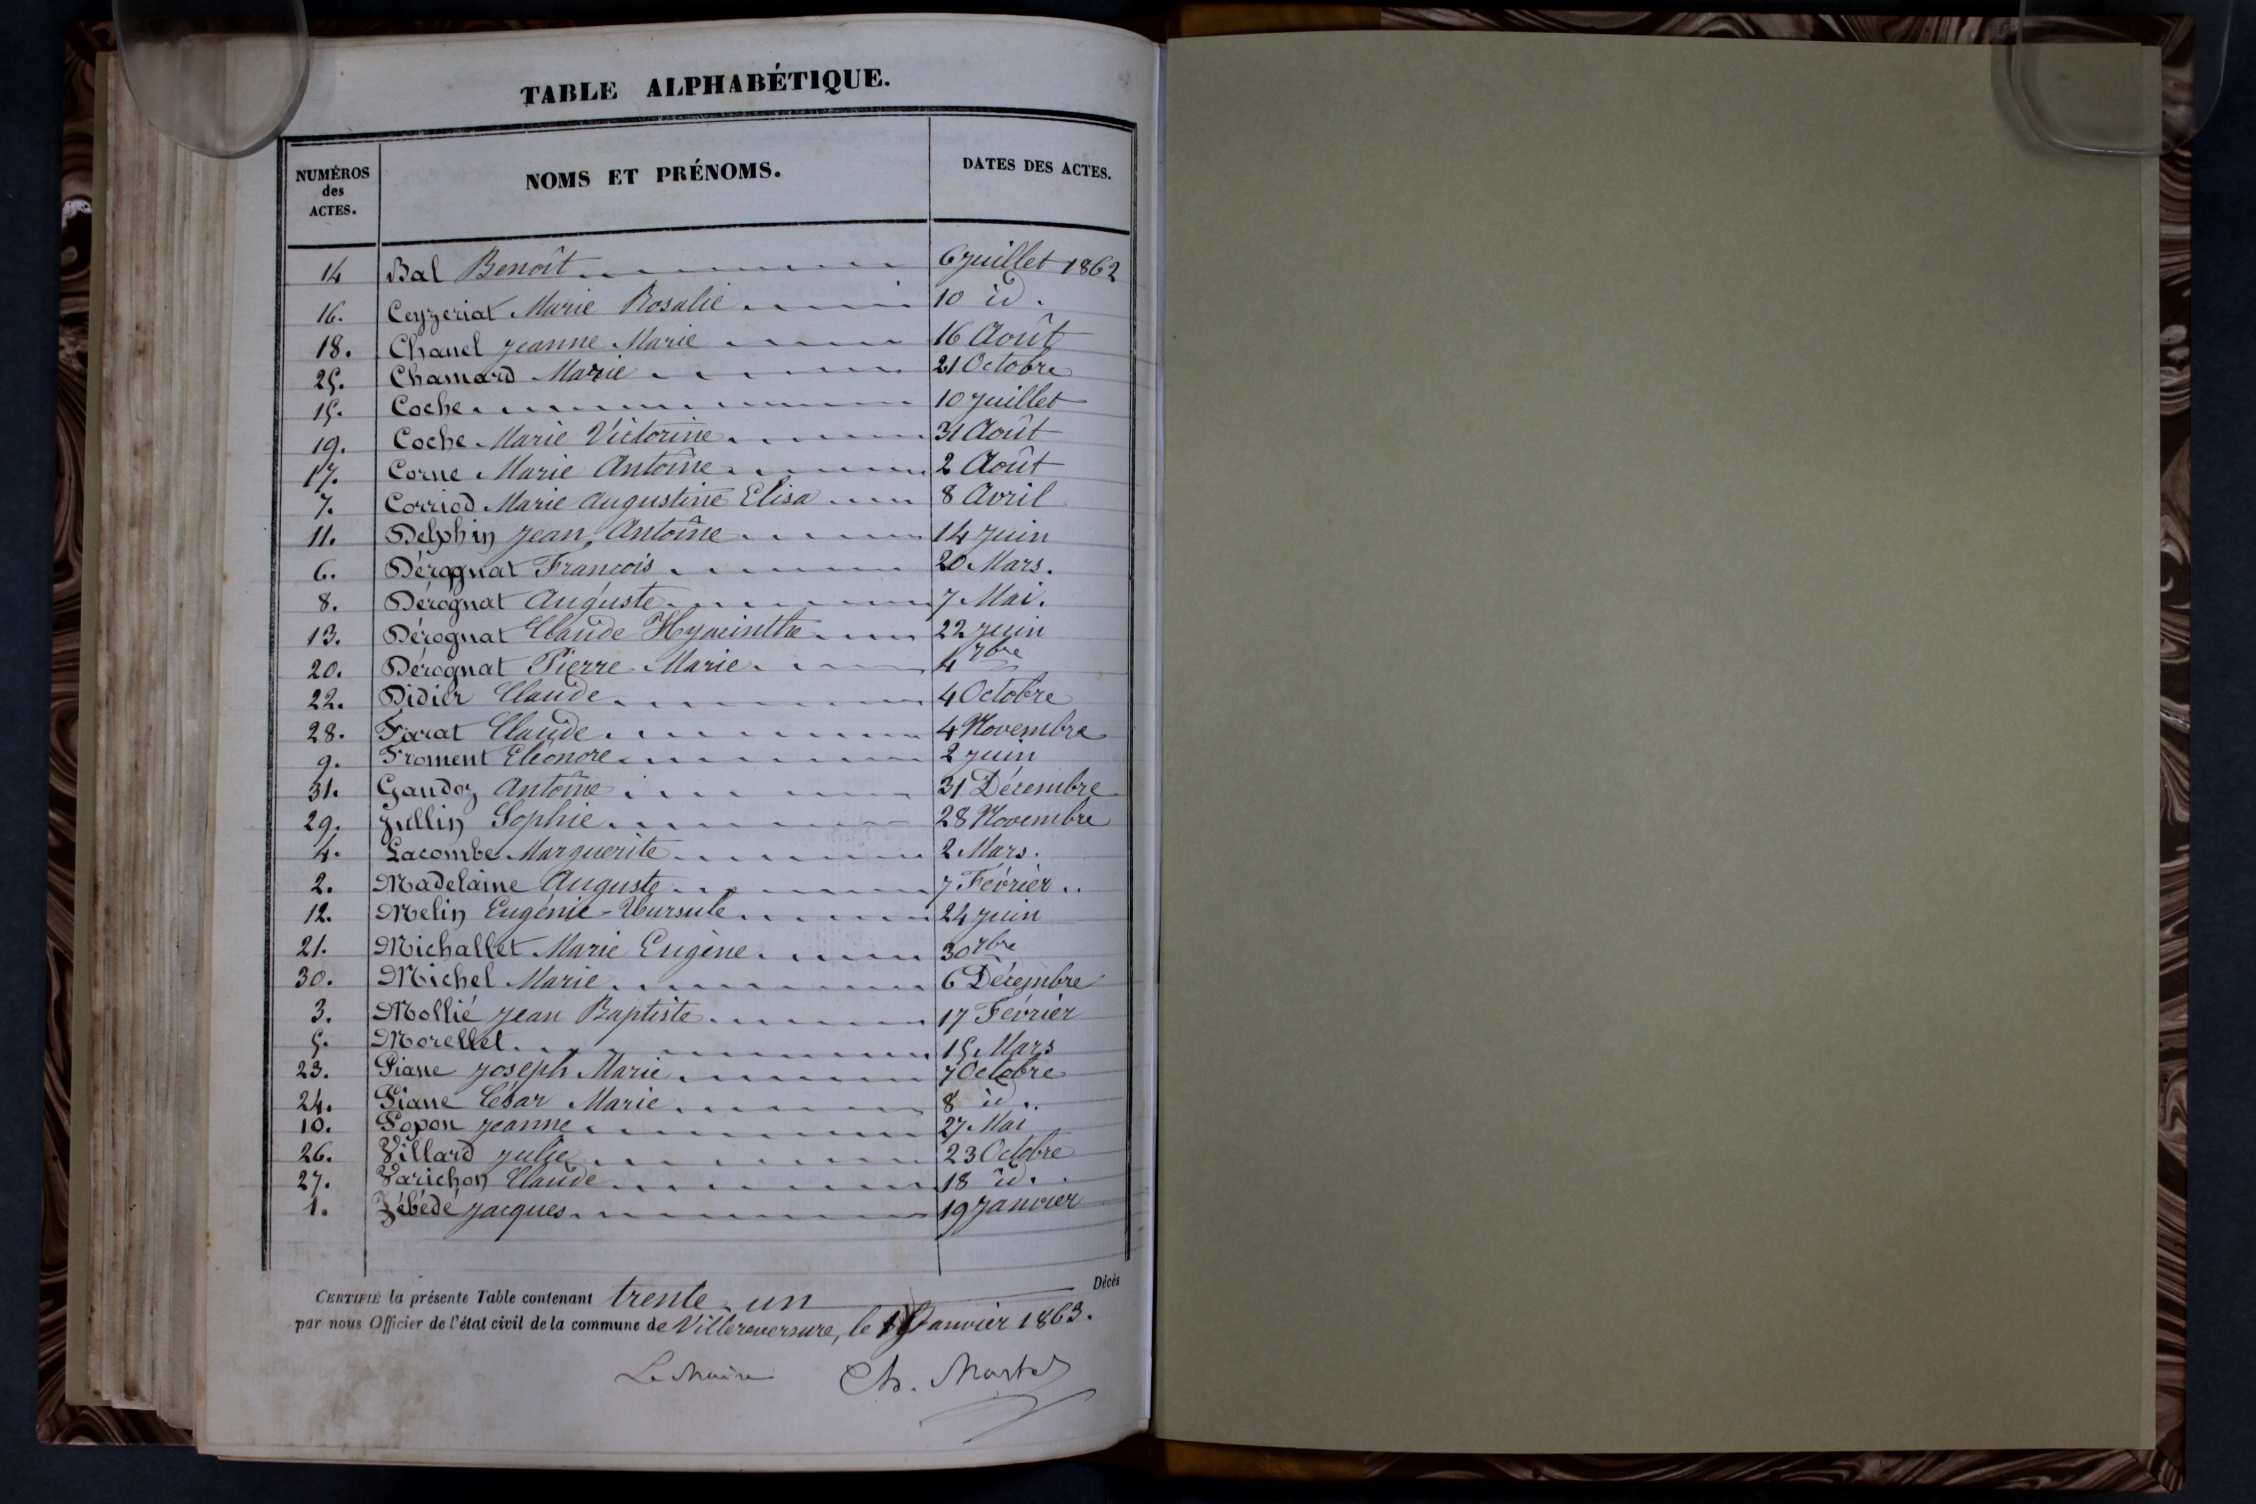 TABLE ALPHABÉTIQUE.
NUMÉROS des ACTES. NOMS ET PRÉNOMS. DATES DES ACTES.
14 Bal Benoît 6 juillet 1862
16. Ceyzeriat Marie Rosalie 10 id.
18. Chanel jeanne Marie 16 Août
25. Chamard Marie 21 Octobre
15. Coche 10 juillet
19. Coche Marie Victorine 31 Août
17. Corne Marie Antoine 2 Août
7. Corriod Marie Augustine Elisa 8 Avril
11. Delphin jean, Antoine 14 juin
6. Dérognat François 20 Mars.
8. Dérognat Auguste 7 Mai.
13. Dérognat Claude Hyacinthe 22 juin
20. Dérognat Pierre Marie 4 7bre
22. Didier Claude 4 Octobre
28. Favrat Claude 4 Novembre
9. Froment Eléonore 2 juin
31. Gaudoz Antoine 31 Décembre
29. Jullin Sophie 28 Novembre
4. Lacombe Marguerite 2 Mars.
2. Madelaine Auguste 7 Février
12. Melin Eugénie-Uursule 24 juin
21. Michallet Marie Eugène 30 7bre
30. Michel Marie 6 Décembre
3. Mollié jean Baptiste 17 Février
5. Morellet 15 Mars
23. Piane joseph Marie 7 Octobre
24. Piane César Marie 8 id.
10. Popon jeanne 27 Mai
26. Villard julie 23 Octobre
27. Varichon Claude 18 id.
1. Zébédé jacques 19 janvier
CERTIFIÉ la présente Table contenant trente-un Décès
par nous Officier de l'état civil de la commune de Villereversure, le janvier 1863.
Le Maire Ch. Martel